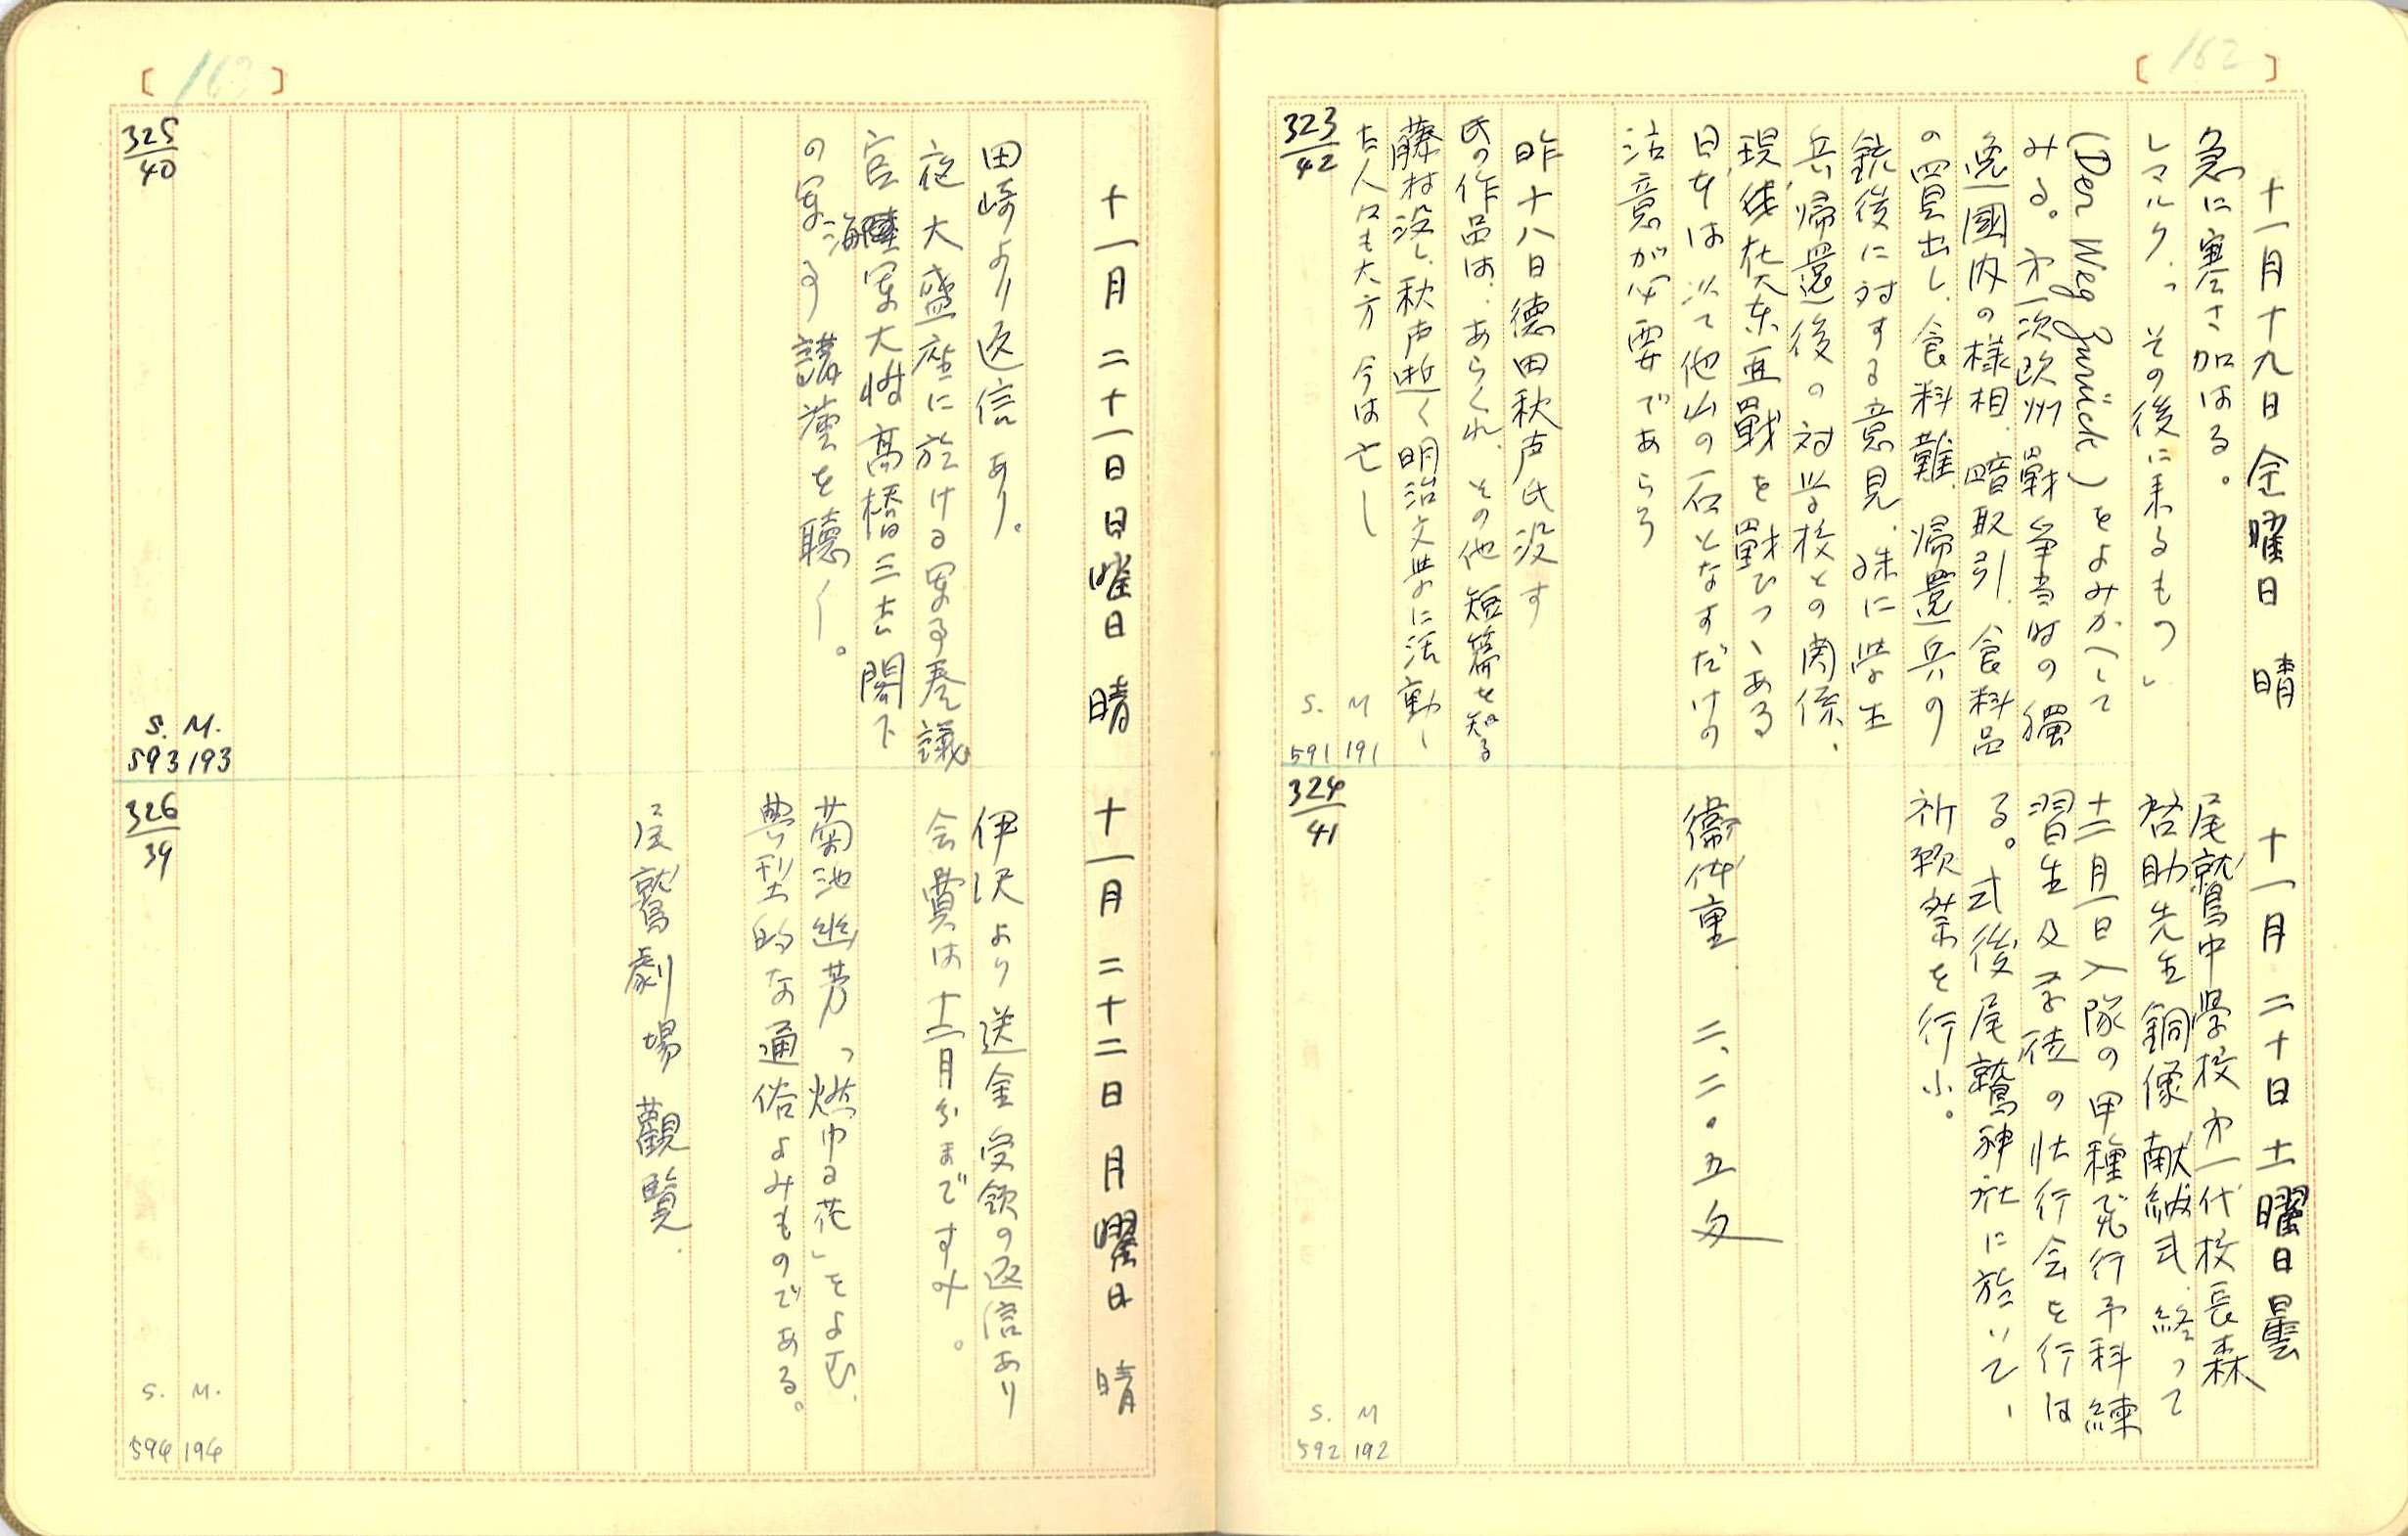 [162]
十一月十九日 金曜日 晴
急に寒さ加はる。
レマルク、「その後に来るもの」
(Der Weg Zurück)をよみかへして
みる。第一次欧州戰争当时の獨
逸國内の様相、暗取引、食料品
の買出し、食料難、帰還兵の
銃後に対する意見、殊に学生
兵帰還後の対学校との関係、
現状大东亜戰を戰ひつゝある
日本は以て他山の石となすだけの
注意が必要であらう
昨十八日徳田秋声氏没す
氏の作品は、あらくれ、その他短篇を知る
藤村没し、秋声逝く 明治文学に活動し
た人々も大方今は亡し
323/42
S. M
591 191
十一月二十日 土曜日 曇
尾鷲中学校第一代校長森
啓助先生銅像献納式、終って
十二月一日入隊の甲種飛行予科練
習生及学徒の壮行会を行は
る。式後尾鷲神社に於いて、
祈願祭を行ふ。
体重 二、二〇五匁
324/41
S. M
592 192
[163]
十一月二十一日 日曜日 晴
田崎より返信あり。
夜大盛座に於ける軍事参議
官海軍大将高橋三吉閣下
の軍事講演を聴く。
325/40
S. M.
593 193
十一月二十二日 月曜日 晴
伊沢より送金受領の返信あり
会費は十二月分まですみ。
菊池幽芳「燃ゆる花」をよむ、
典型的な通俗よみものである。
尾鷲劇場観覧.
326/39
S. M.
594 194